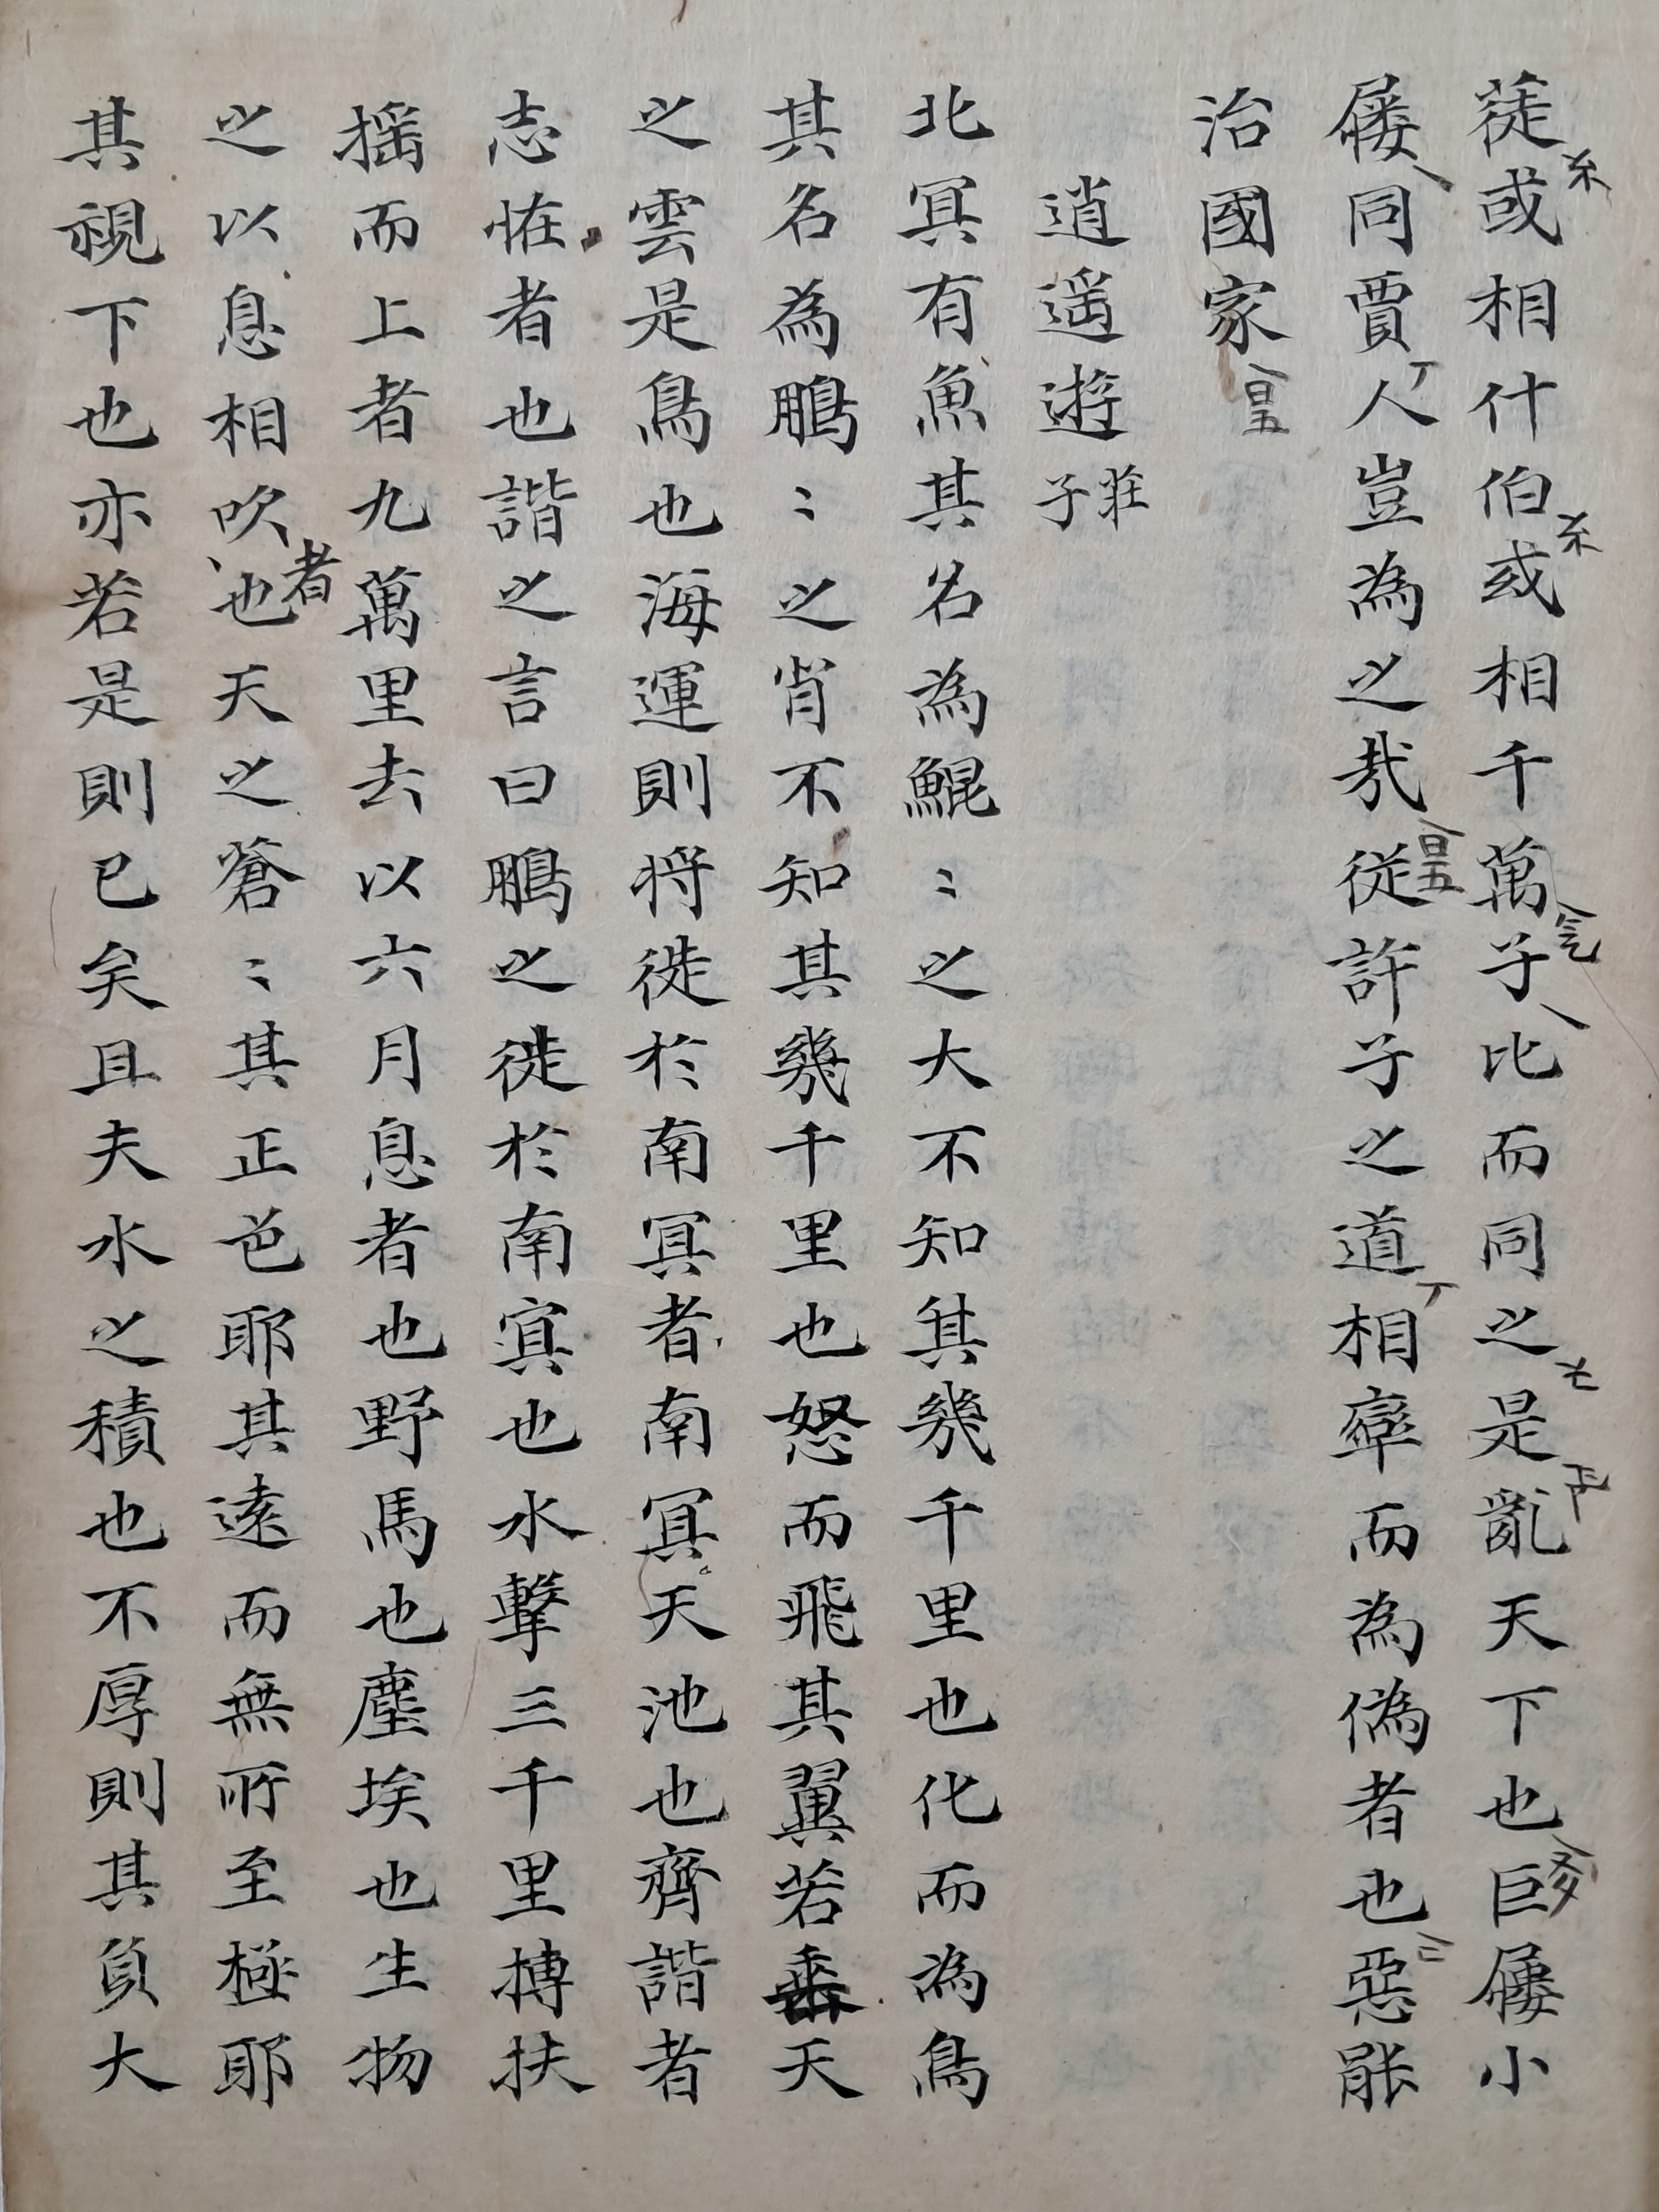 蓰或相什伯或相千萬子比而同之是亂天下也巨屨小
屨同賈人豈為之哉從許子之道相率而為偽者也惡能
治國家
逍遥遊 莊子
北冥有魚其名為鯤〻之大不知其幾千里也化而為鳥
其名為鵬〻之背不知其幾千里也怒而飛其翼若垂天
之雲是鳥也海運則将徙於南冥者南冥天池也齊諧者
志恠者也諧之言曰鵬之徙於南㝠也水擊三千里搏扶
摇而上者九萬里去以六月息者也野馬也塵埃也生物
之以息相吹也者天之蒼〻其正色耶其遠而無所至極耶
其視下也亦若是則已矣且夫水之積也不厚則其負大